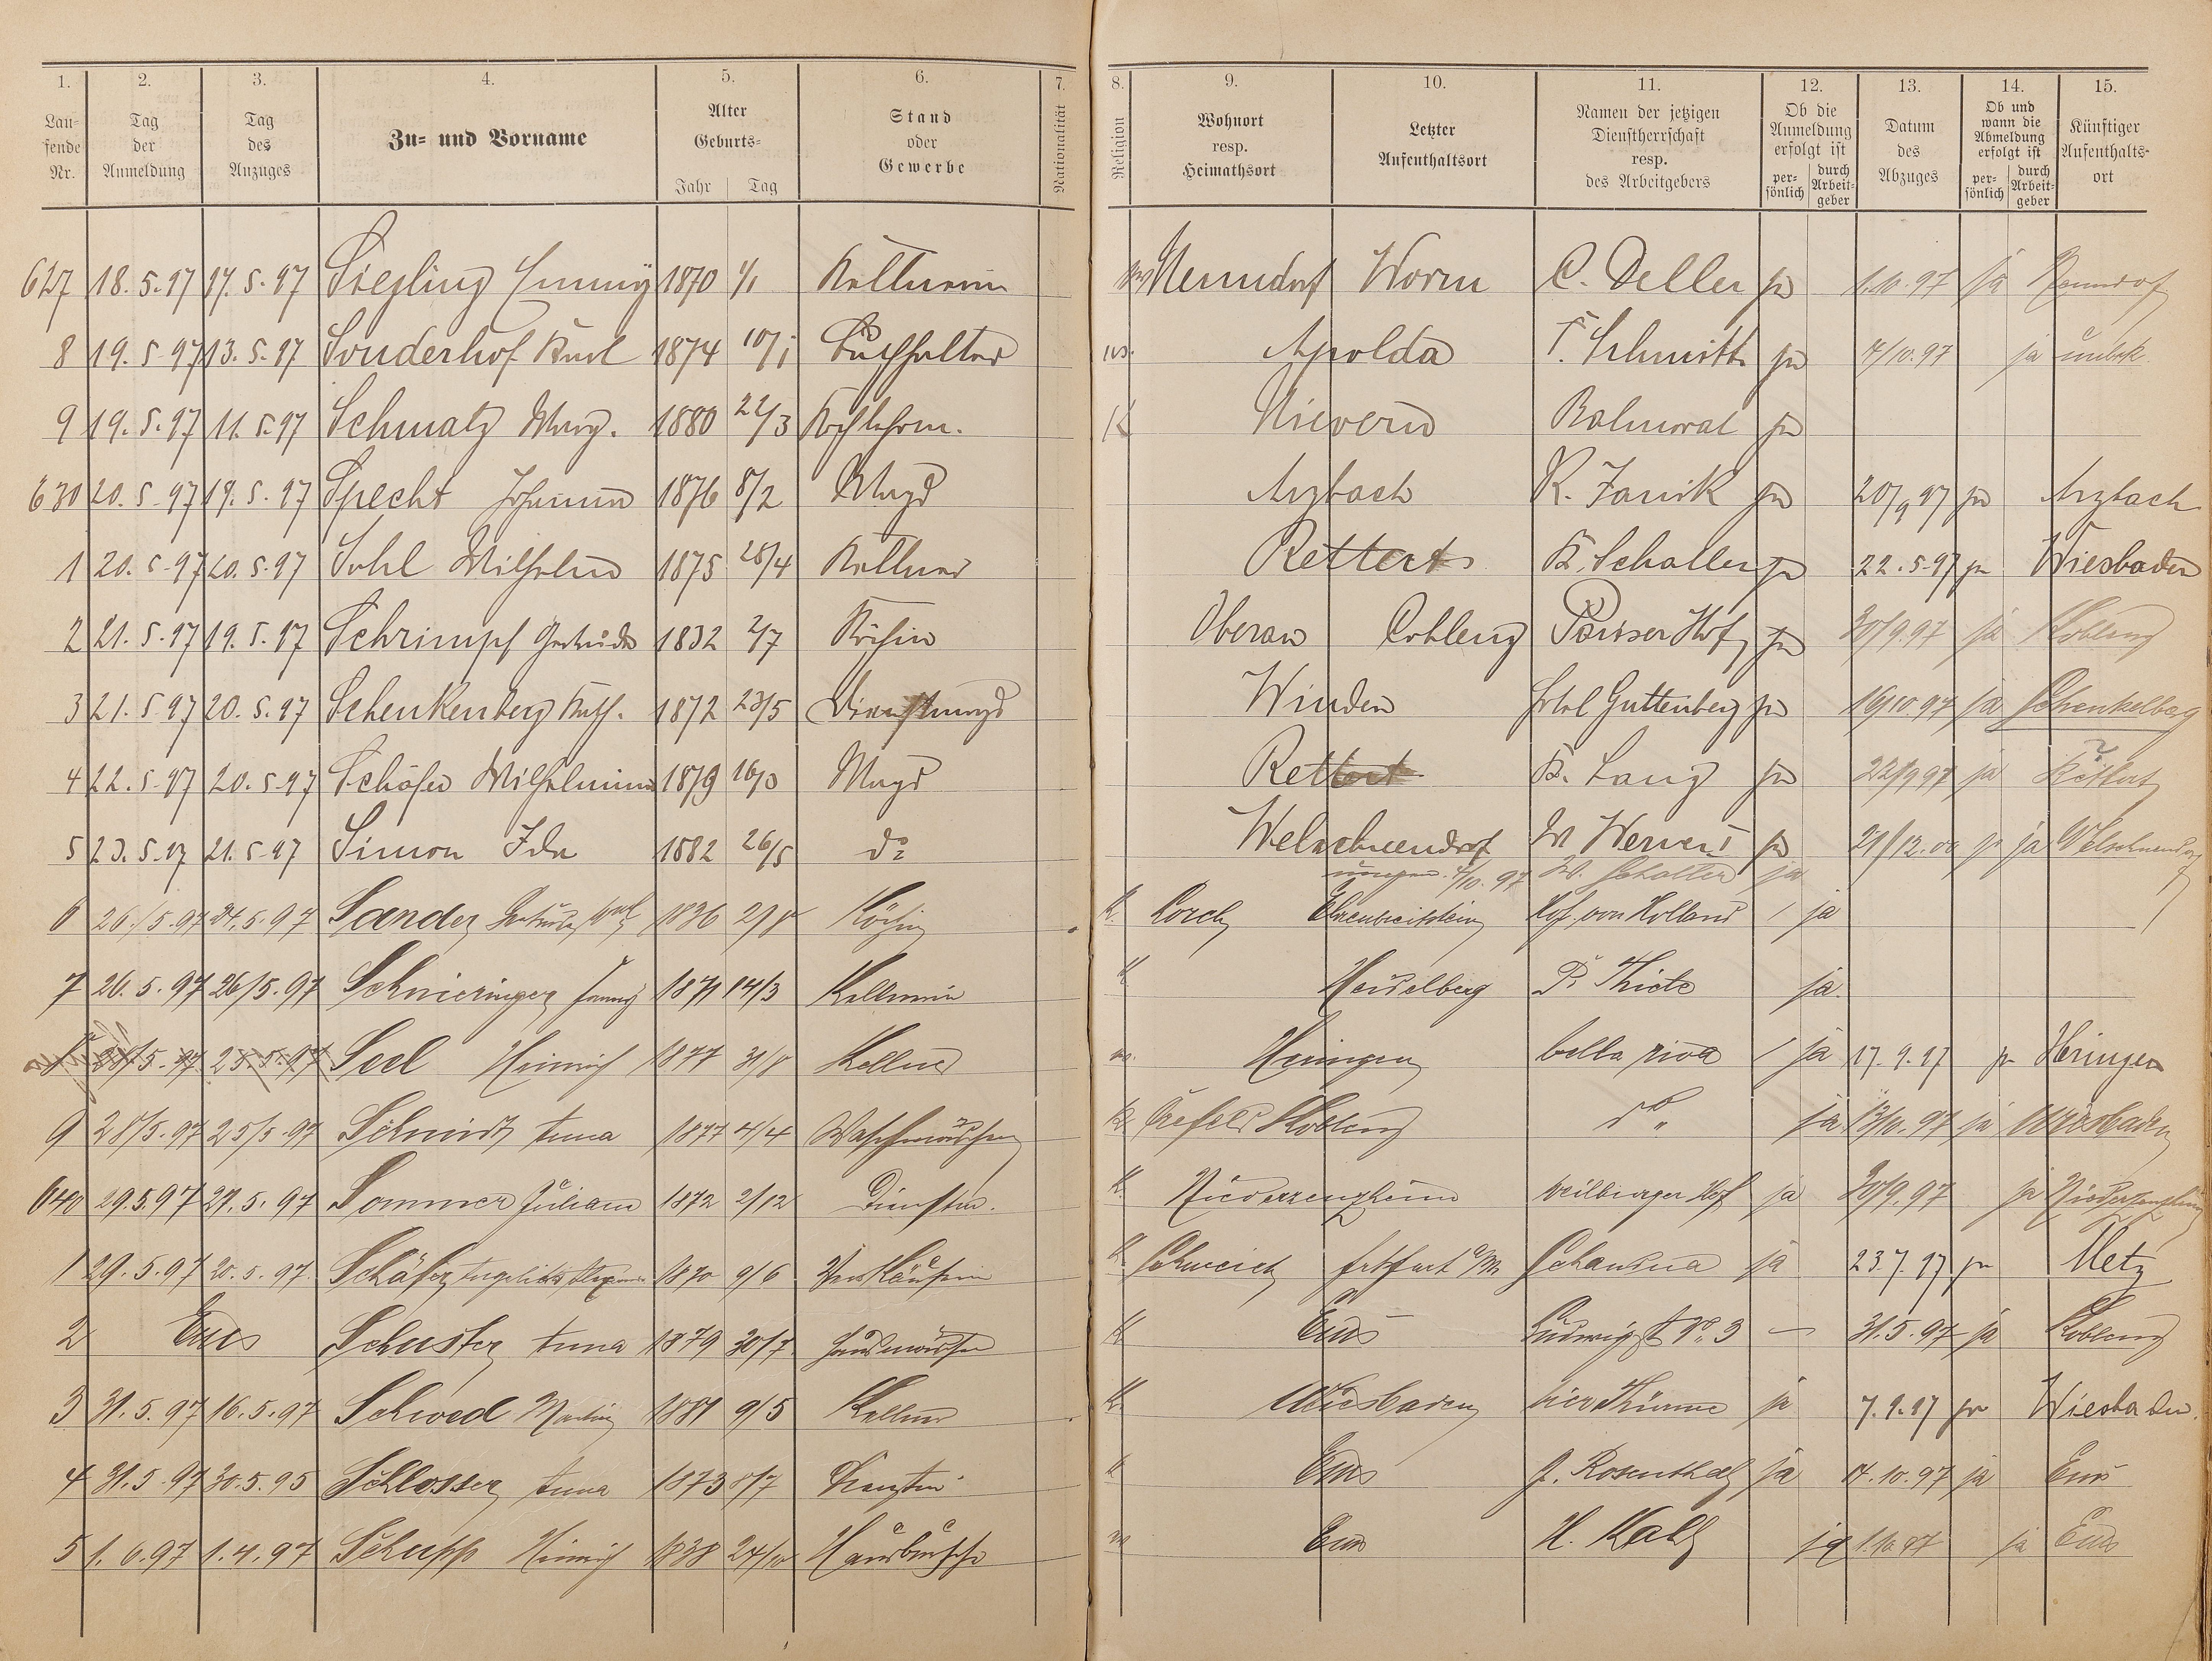 1. 2. 3. 4. 5. 6. 7. 8. 9. 10. 11. 12. 13. 14. 15.
Lau-
fende
Nr.
Tag
der
Anmeldung
Tag
des
Anzuges
Zu- und Vorname
Alter
Geburts-
Jahr Tag
Stand
oder
Gewerbe
Nationalität
Religion
Wohnort
resp.
Heimathsort
Letzter
Aufenthaltsort
Namen der jetzigen
Dienstherrschaft
resp.
des Arbeitgebers
Ob die
Anmeldung
erfolgt ist
per-
sönlich
durch
Arbeit-
geber
Datum
des
Abzuges
Ob und
wann die
Abmeldung
erfolgt ist
per-
sönlich
durch
Arbeit-
geber
Künftiger
Aufenthalts-
ort
627 18.5.97 17.5.97 Siegling Emmy 1870 1/1 Kellnerin Nenndorf Worm C. Deller ja 1.10.97 ja Nenndorf
8 19.5.97 13.5.97 Sonderhof Karl 1874 10/1 Buchhalter Apolda F. Schmitt ja 4/10.97 ja unbek.
9 19.5.97 11.5.97 Schmalz Marg. 1880 22/3 Kochlehrn. K Nievern Balmoral ja
630 20.5.97 19.5.97 Specht Johanna 1876 8/2 Magd Arzbach K. Janik ja 20/9 97 ja Arzbach
1 20.5.97 20.5.97 Sohl Wilhelm 1875 28/4 Kellner Rettert K. Schaller ja 22.5.97 ja Wiesbaden
2 21.5.97 19.5.97 Schrimpf Gertrude 1832 2/7 Köchin Oberau Coblenz Pariser Hof ja 30/9.97 ja Koblenz
3 21.5.97 20.5.97 Schenkenberg Kath. 1872 23/5 Dienstmagd Winden Hotel Guttenberg ja 16/10.97 ja Schenkelberg
4 22.5.97 20.5.97 Schäfer Wilhelmine 1879 16/3 Magd Rettert K. Lang ja 22/9 97 ja Rettert
5 23.5.97 21.5.97 Simon Ida 1882 26/5 do Welschneudorf W Wewers ja 29/12.00 ja ja Welschneudorf
4/10.97 W. Schaller ja
6 26./5.97 24.5.97 Sander Gertrude 1836 2/8 Köchin K. Lorch Ehrenbreitstein Hof von Holland / ja
7 26.5.97 26/5.97 Schnieringer Fanny 1871 14/3 Kellnerin K Heidelberg P. Thiele ja.
8 28/5.97 25.5.97 Seel Heinrich 1877 31/8 Kellner Heringen bella riva / ja 17.9.97 ja Heringen
9 28/5.97 25/5.97 Schmidt Anna 1877 4/4 Waschmädchen K Crefeld Koblenz do " ja 13/10.97 ja Wiesbaden
640 29.5.97 27.5.97 Sommer Juliane 1872 2/12 Dienstm. K. Niederzeuzheim weilburger Hof ja 30/9.97 ja Niederzeuzheim
1 29.5.97 20.5.97 Schäfer 1870 9/6 Verkäuferin K Schweich frkfurt a/M ja 23.7.97 ja Metz
2 Ems Schuster Anna 1879 30/7 Hausmädchen K Ems Ludwigst No. 3 — 31.5.97 ja Koblenz
3 31.5.97 16.5.97 Schwed Martin 1881 9/5 Kellner K. Wiesbaden vier Thürme ja 7.9.97 ja Wiesbaden.
4 31.5.97 30.5.95 Schlosser Anna 1873 8/7 K Ems J. Rosenthal ja 14.10.97 ja Ems
5 1.6.97 1.4.97 Schupp Heinrich 1838 24/10 Hausbursche Ems H. Kalb ja 1.10.97 ja Ems